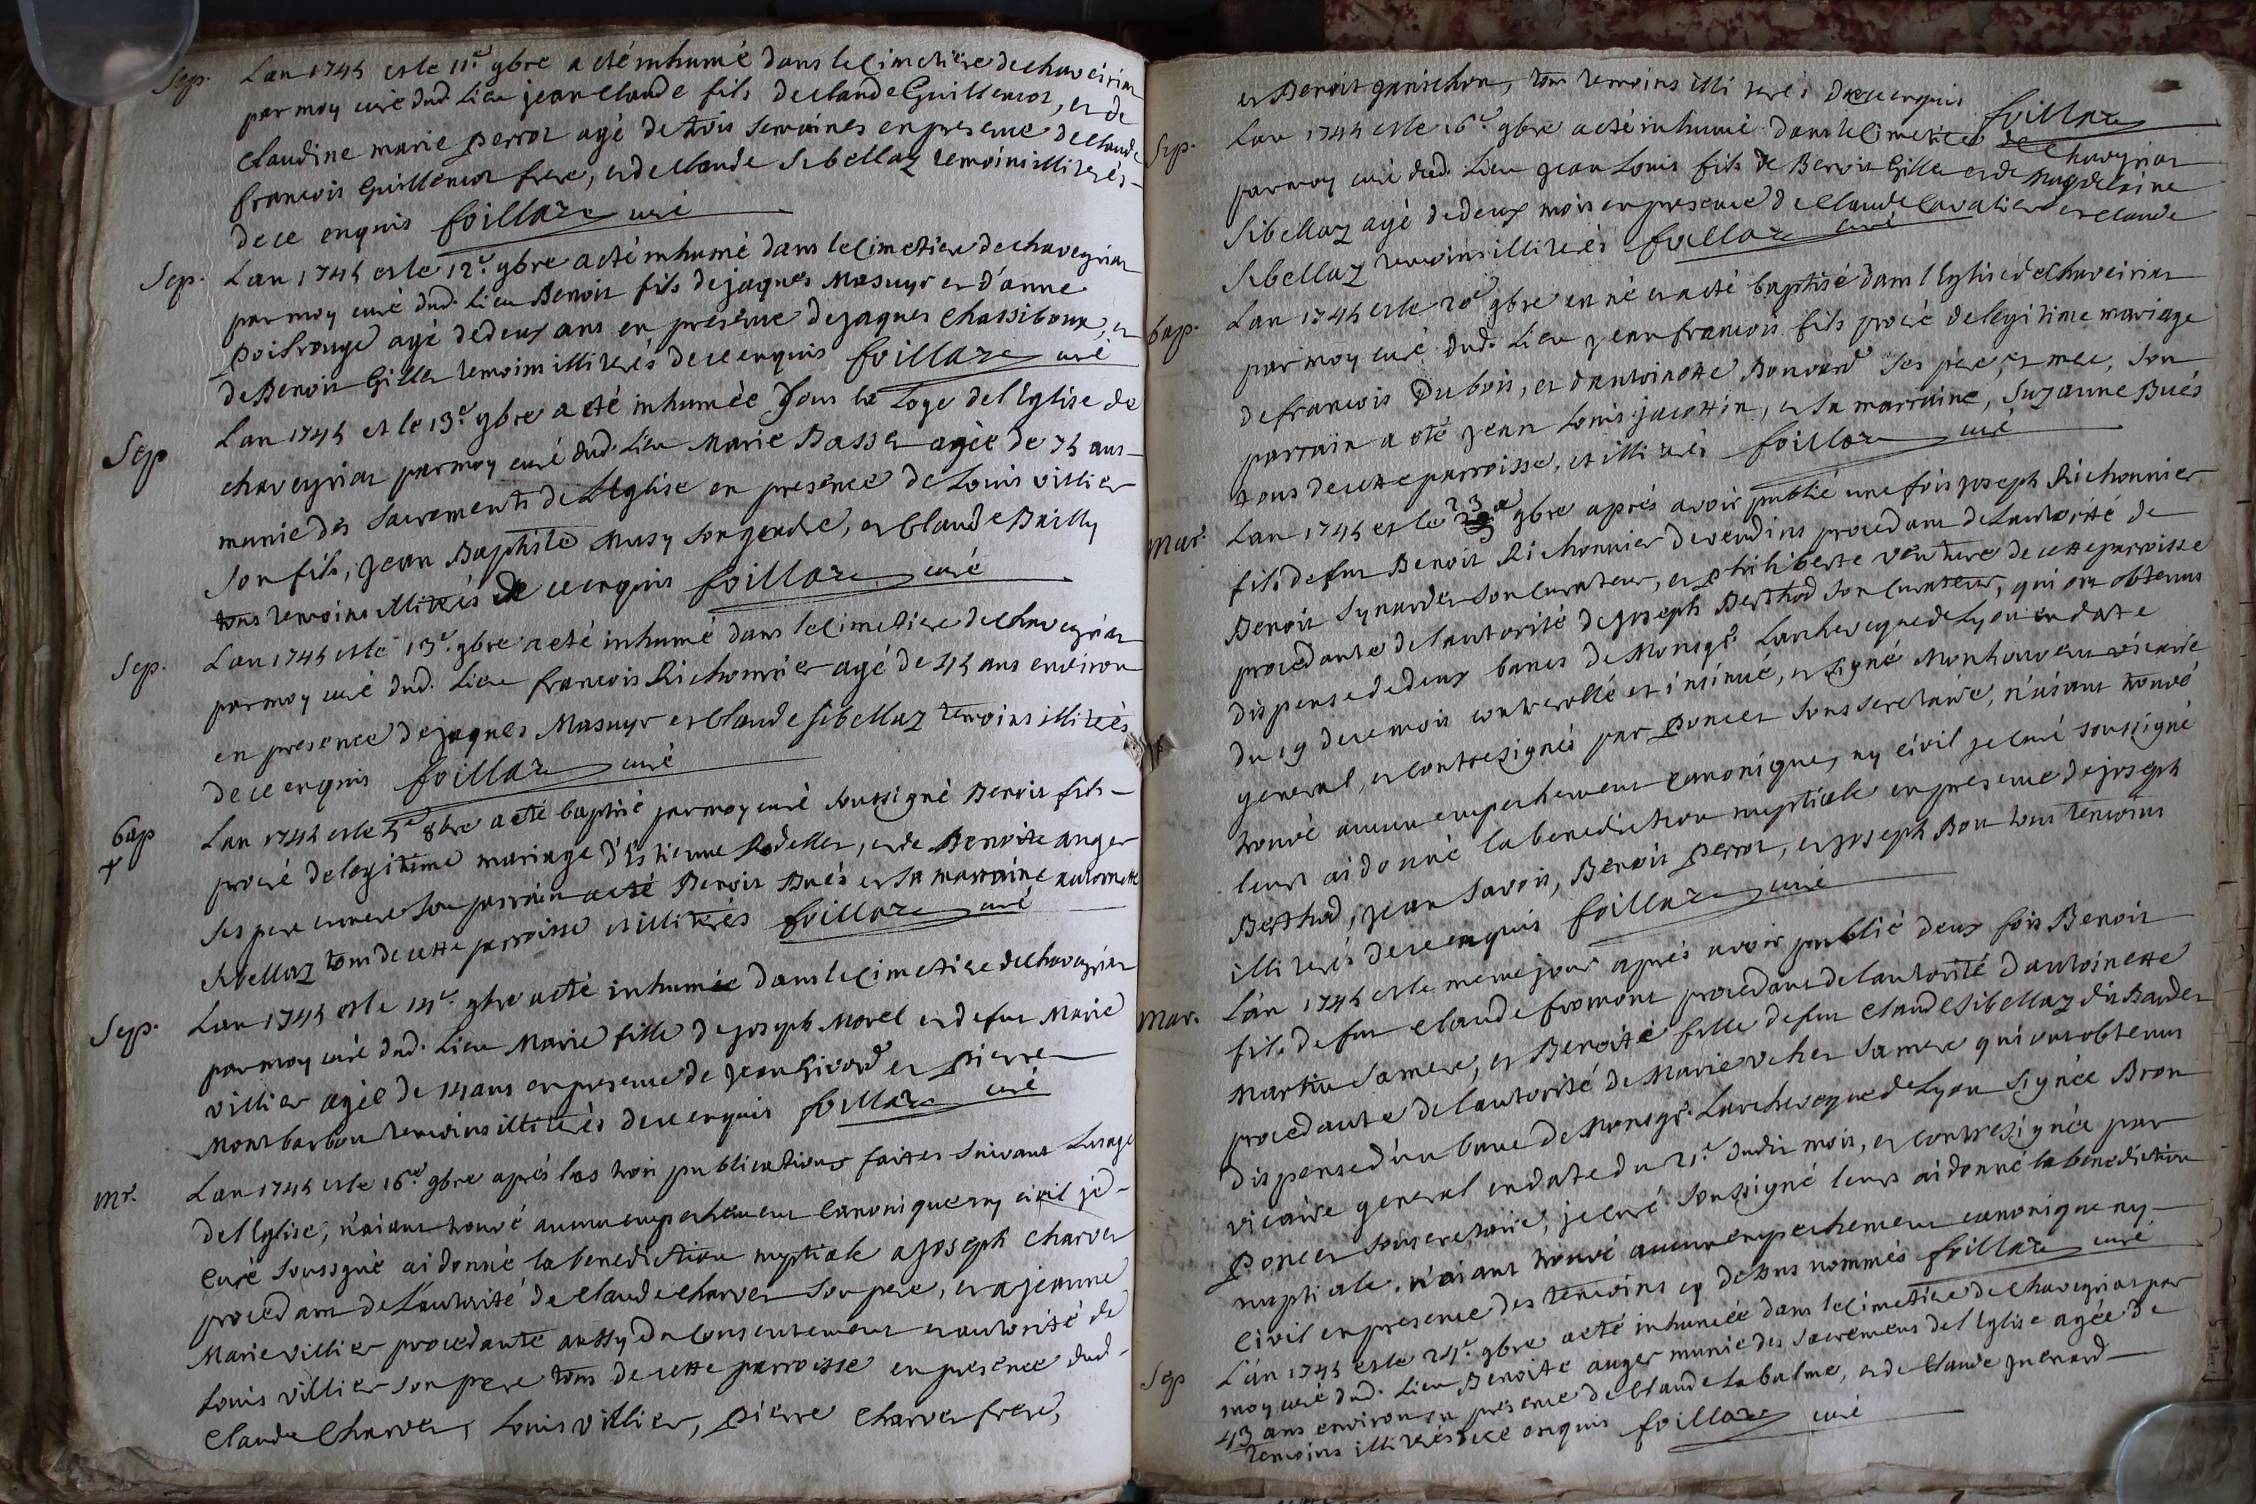 Sep. L'an 1745 et le 11e 9bre a eté inhumé dans le cimetiere de chaveiriat
par moy curé dud. Lieu jean Claude fils de Claude Guillemot, et de
Claudine marie perrot agé de trois semaines en presence de Claude
francois Guillemot frere, et de Claude Sibellaz temoins illiterés
de ce enquis foillaz curé
Sep. L'an 1745 et le 12e 9bre a eté inhumé dans le cimetiere de chaveyriat
par moy curé dud. Lieu Benoit fils de jaques Masuyr et d'anne
poilrouge agé de deux ans en presence de jaques Chassiboux, et
de Benoit Gillet temoins illiterés de ce enquis foillaz curé
Sep L'an 1745 et le 13e 9bre a eté inhumée sous la Loge de l'Eglise de
chaveyriat par moy curé dud. Lieu Marie Basset agée de 75 ans
munie des sacrements de L'Eglise en presence de Louis villier
son fils, jean Baptiste Musy son gendre, et Claude Bailly
tous temoins illiterés de ce enquis foillaz curé
Sep. L'an 1745 et le 13e 9bre a eté inhumé dans le cimetiere de chaveyriat
par moy curé dud. Lieu francois Richonnier agé de 45 ans environ
en presence de jaques Masuyr et Claude Sibellaz temoins illiterés
de ce enquis foillaz curé
bap L'an 1745 et le 5e 8bre a eté baptisé par moy curé soussigné Benoit fils
procré de legitime mariage d'Estienne Rodellet, et de Benoite anger
ses pere et mere son parrain a eté Benoit Bués et sa marraine antoinette
Sibellaz tous de cette parroisse et illiterés foillaz curé
Sep. L'an 1745 et le 14e 9bre a eté inhumée dans le cimetiere de chaveyriat
par moy curé dud. Lieu Marie fille de joseph Morel et de fut Marie
villier agée de 14 ans en presence de jean Givord et pierre
Montbarbon temoins illiterés de ce enquis foillaz curé
Mr. L'an 1745 et le 16e 9bre aprés les trois publications faites suivant L'usage
de l'Eglise, n'aiant trouvé aucun empechement canonique ny civil je
curé soussigné ai donné la benediction nuptiale a joseph Charvet
procedant de L'autorité de Claude Charvet son pere, et a jeanne
Marie villier procedante aussy du consentement et autorité de
Louis villier son pere tous de cette parroisse en presence dud.
Claude Charvet, Louis villier, pierre Charvet frere,
et Benoit ganichon, tous temoins illiterés de ce enquis foillaz
Sep. L'an 1745 et le 16e 9bre a eté inhumé dans le cimetiere de Chaveyriat
par moy curé dud. Lieu jean Louis fils de Benoit Gillet et de Magdelaine
Sibellaz agé de deux mois en presence de Claude Cavalier et Claude
Sibellaz temoins illiterés foillaz curé
bap. L'an 1745 et le 20e 9bre en né et a eté baptisé dans l'Eglise de Chaveiriat
par moy curé dud. Lieu jean francois fils procré de legitime mariage
de francois Dubois, et d'antoinette Bonvard ses pere, et mere, son
parrain a eté jean Louis jacottin, et sa marraine, Suzanne Bués
tous de cette parroisse, et illiterés foillaz curé
Mar. L'an 1745 et le 23e 9bre aprés avoir publié une fois joseph Richonnier
fils de fut Benoit Richonnier de vendins procedant de L'autorité de
Benoit Synardet son curateur, et philiberte venture de cette parroisse
procedante de l'autorité de joseph Berthod son curateur, qui ont obtenus
dispense de deux bancs de Monsgr. L'archeveque de Lyon en date
du 19 de ce mois controllé et insinué, et signé Monhouveu vicaire
general, et contresignés par poncet sous secretaire, n'aiant trouvé
trouvé aucun empechement canonique, ny civil je curé soussigné
leurs ai donné la benediction nuptiale en presence de joseph
Berthod, jean Savoit, Benoit perrot, et joseph Bon tous temoins
illiterés de ce enquis foillaz curé
Mar. L'an 1745 et le meme jour aprés avoir publié deux fois Benoit
fils de fut Claude fromont procedant de l'autorité d'antoinette
Martin sa mere, et Benoité fille de fut Claude Sibellaz dit Bardet
procedante de l'autorité de Marie vehet sa mere qui ont obtenus
dispense d'un banc de Monsgr. L'archeveque de Lyon signée Bron
vicaire general en date du 21e dudit mois, et contresignée par
poncet sous secretaire, je curé soussigné leurs ai donné la benediction
nuptiale. n'aiant trouvé aucun empechement canonique ny
civil en presence des temoins cy dessus nommés foillaz curé
Sep L'an 1745 et le 24e 9bre a eté inhumée dans le cimetiere de chaveyriat par
moy curé dud. Lieu Benoite auger munie des sacremens de l'Eglise agée de
43 ans environ en presence de Claude Labalme, et de Claude guerard
temoins illiterés de ce enquis foillaz curé